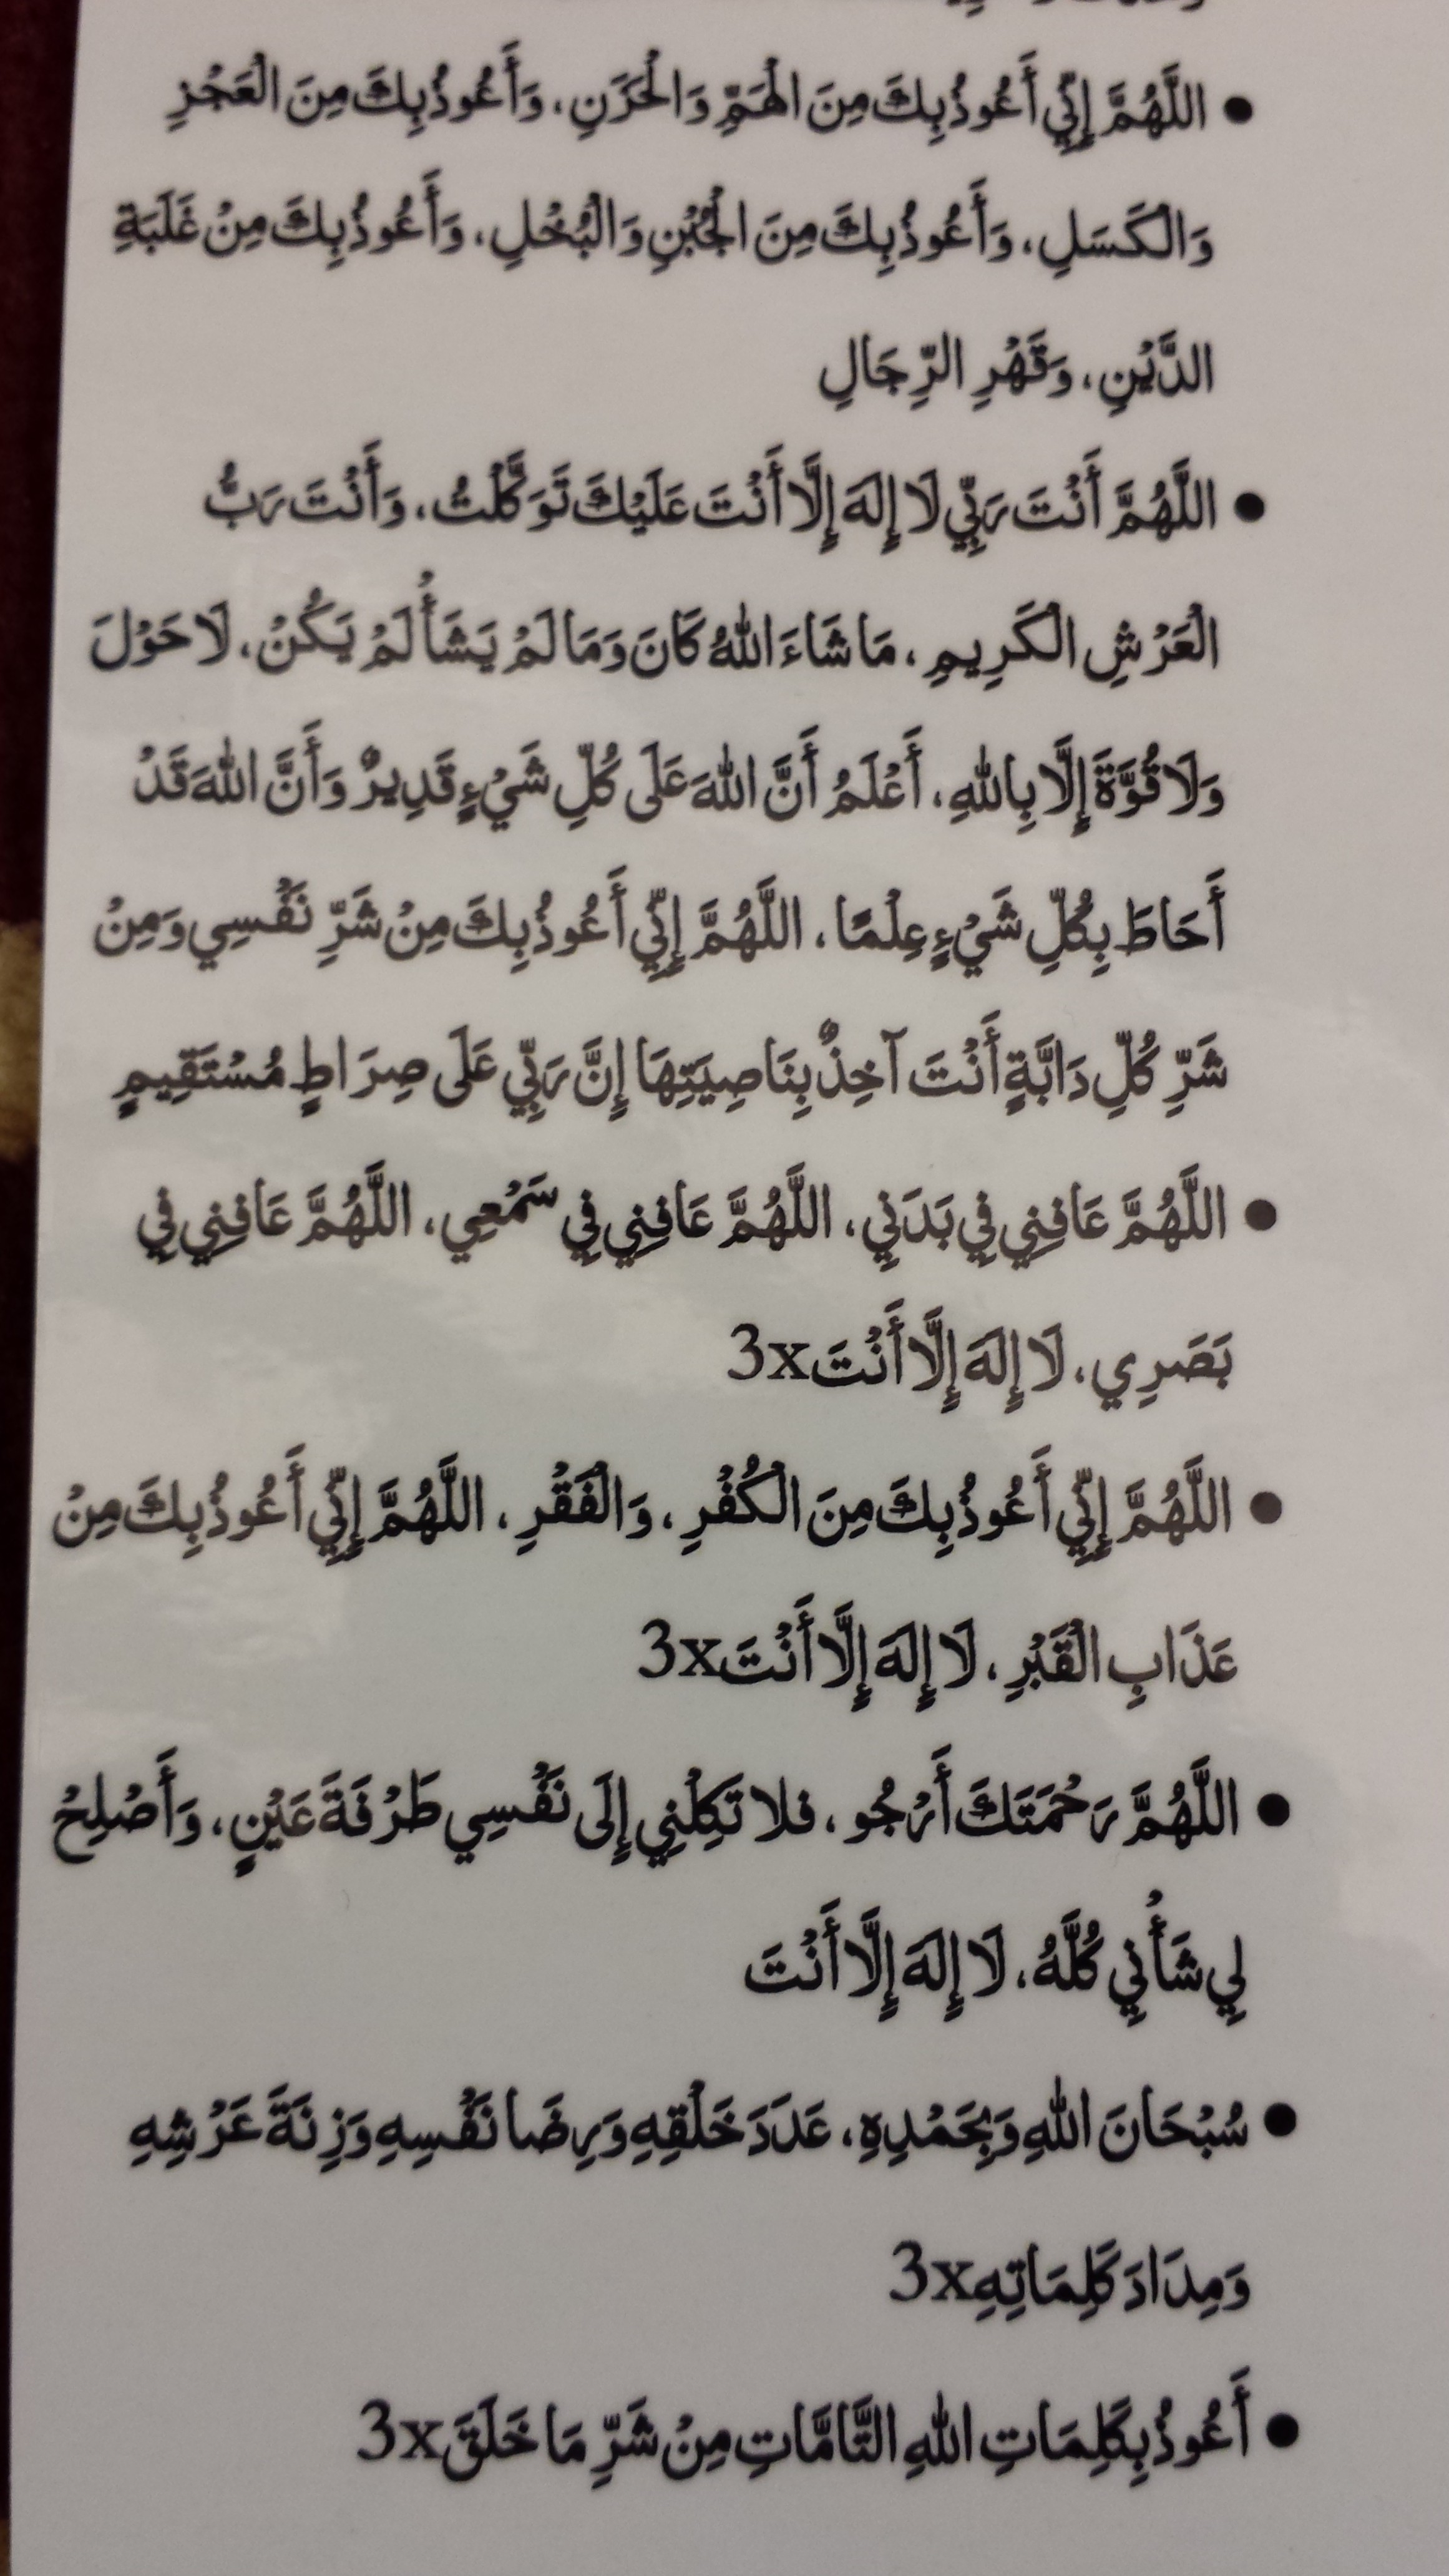 • اللَّهُمَّ إِنِّي أَعُوذُ بِكَ مِنَ الْهَمِّ وَالْحَزَنِ، وَأَعُوذُ بِكَ مِنَ الْعَجْزِ
وَالْكَسَلِ، وَأَعُوذُ بِكَ مِنَ الْجُبْنِ وَالْبُخْلِ، وَأَعُوذُ بِكَ مِنْ غَلَبَةِ
الدَّيْنِ، وَقَهْرِ الرِّجَالِ
• اللَّهُمَّ أَنْتَ رَبِّي لَا إِلَهَ إِلَّا أَنْتَ عَلَيْكَ تَوَكَّلْتُ، وَأَنْتَ رَبُّ
الْعَرْشِ الْكَرِيمِ، مَا شَاءَ اللهُ كَانَ وَمَا لَمْ يَشَأْ لَمْ يَكُنْ، لَا حَوْلَ
وَلَا قُوَّةَ إِلَّا بِاللهِ، أَعْلَمُ أَنَّ اللهَ عَلَى كُلِّ شَيْءٍ قَدِيرٌ وَأَنَّ اللهَ قَدْ
أَحَاطَ بِكُلِّ شَيْءٍ عِلْمًا، اللَّهُمَّ إِنِّي أَعُوذُ بِكَ مِنْ شَرِّ نَفْسِي وَمِنْ
شَرِّ كُلِّ دَابَّةٍ أَنْتَ آخِذٌ بِنَاصِيَتِهَا إِنَّ رَبِّي عَلَى صِرَاطٍ مُسْتَقِيمٍ
• اللَّهُمَّ عَافِنِي فِي بَدَنِي، اللَّهُمَّ عَافِنِي فِي سَمْعِي، اللَّهُمَّ عَافِنِي فِي
بَصَرِي، لَا إِلَهَ إِلَّا أَنْتَ 3x
• اللَّهُمَّ إِنِّي أَعُوذُ بِكَ مِنَ الْكُفْرِ، وَالْفَقْرِ، اللَّهُمَّ إِنِّي أَعُوذُ بِكَ مِنْ
عَذَابِ الْقَبْرِ، لَا إِلَهَ إِلَّا أَنْتَ 3x
• اللَّهُمَّ رَحْمَتَكَ أَرْجُو، فلا تَكِلْنِي إِلَى نَفْسِي طَرْفَةَ عَيْنٍ، وَأَصْلِحْ
لِي شَأْنِي كُلَّهُ، لَا إِلَهَ إِلَّا أَنْتَ
• سُبْحَانَ اللهِ وَبِحَمْدِهِ، عَدَدَ خَلْقِهِ وَرِضَا نَفْسِهِ وَزِنَةَ عَرْشِهِ
وَمِدَادَ كَلِمَاتِهِ 3x
• أَعُوذُ بِكَلِمَاتِ اللهِ التَّامَّاتِ مِنْ شَرِّ مَا خَلَقَ 3x